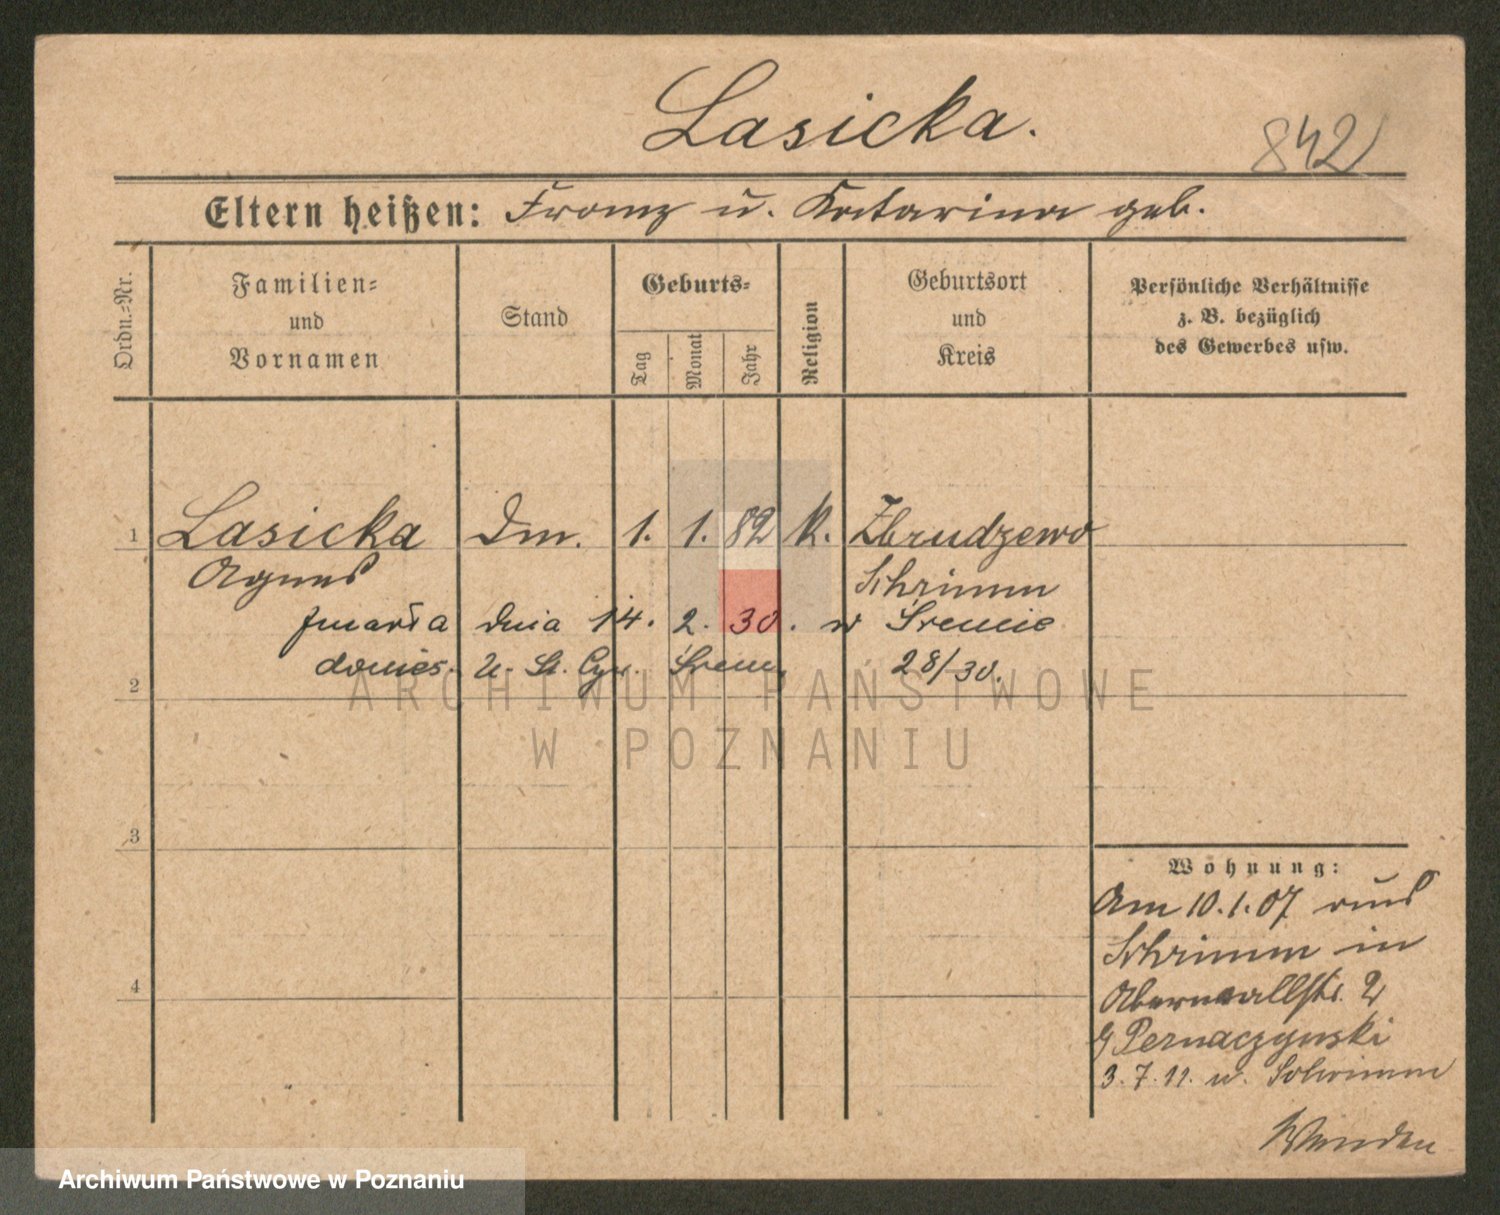 Lasicka.
842
Eltern heißen: Franz u. Katarina geb.
Ordn.-Nr.
Familien-
und
Vornamen
Stand
Geburts-
Tag
Monat
Jahr
Religion
Geburtsort
und
Kreis
Persönliche Verhältnisse
z. B. bezüglich
des Gewerbes usw.
1 Lasicka Dm. 1. 1. 82 k. Zbrudzewo
Agnes Schrimm
zmarła dnia 14. 2. 30. w Śremie
donies. U. St. Cyw. Śrem, 28/30.
2
3
4
Wohnung:
Am 10.1.07 aus
Schrimm in
Oberwallstr. 2
Pernaczynski
3.7.11. n. Schrimm
Wenden
ARCHIWUM PAŃSTWOWE
W POZNANIU
Archiwum Państwowe w Poznaniu